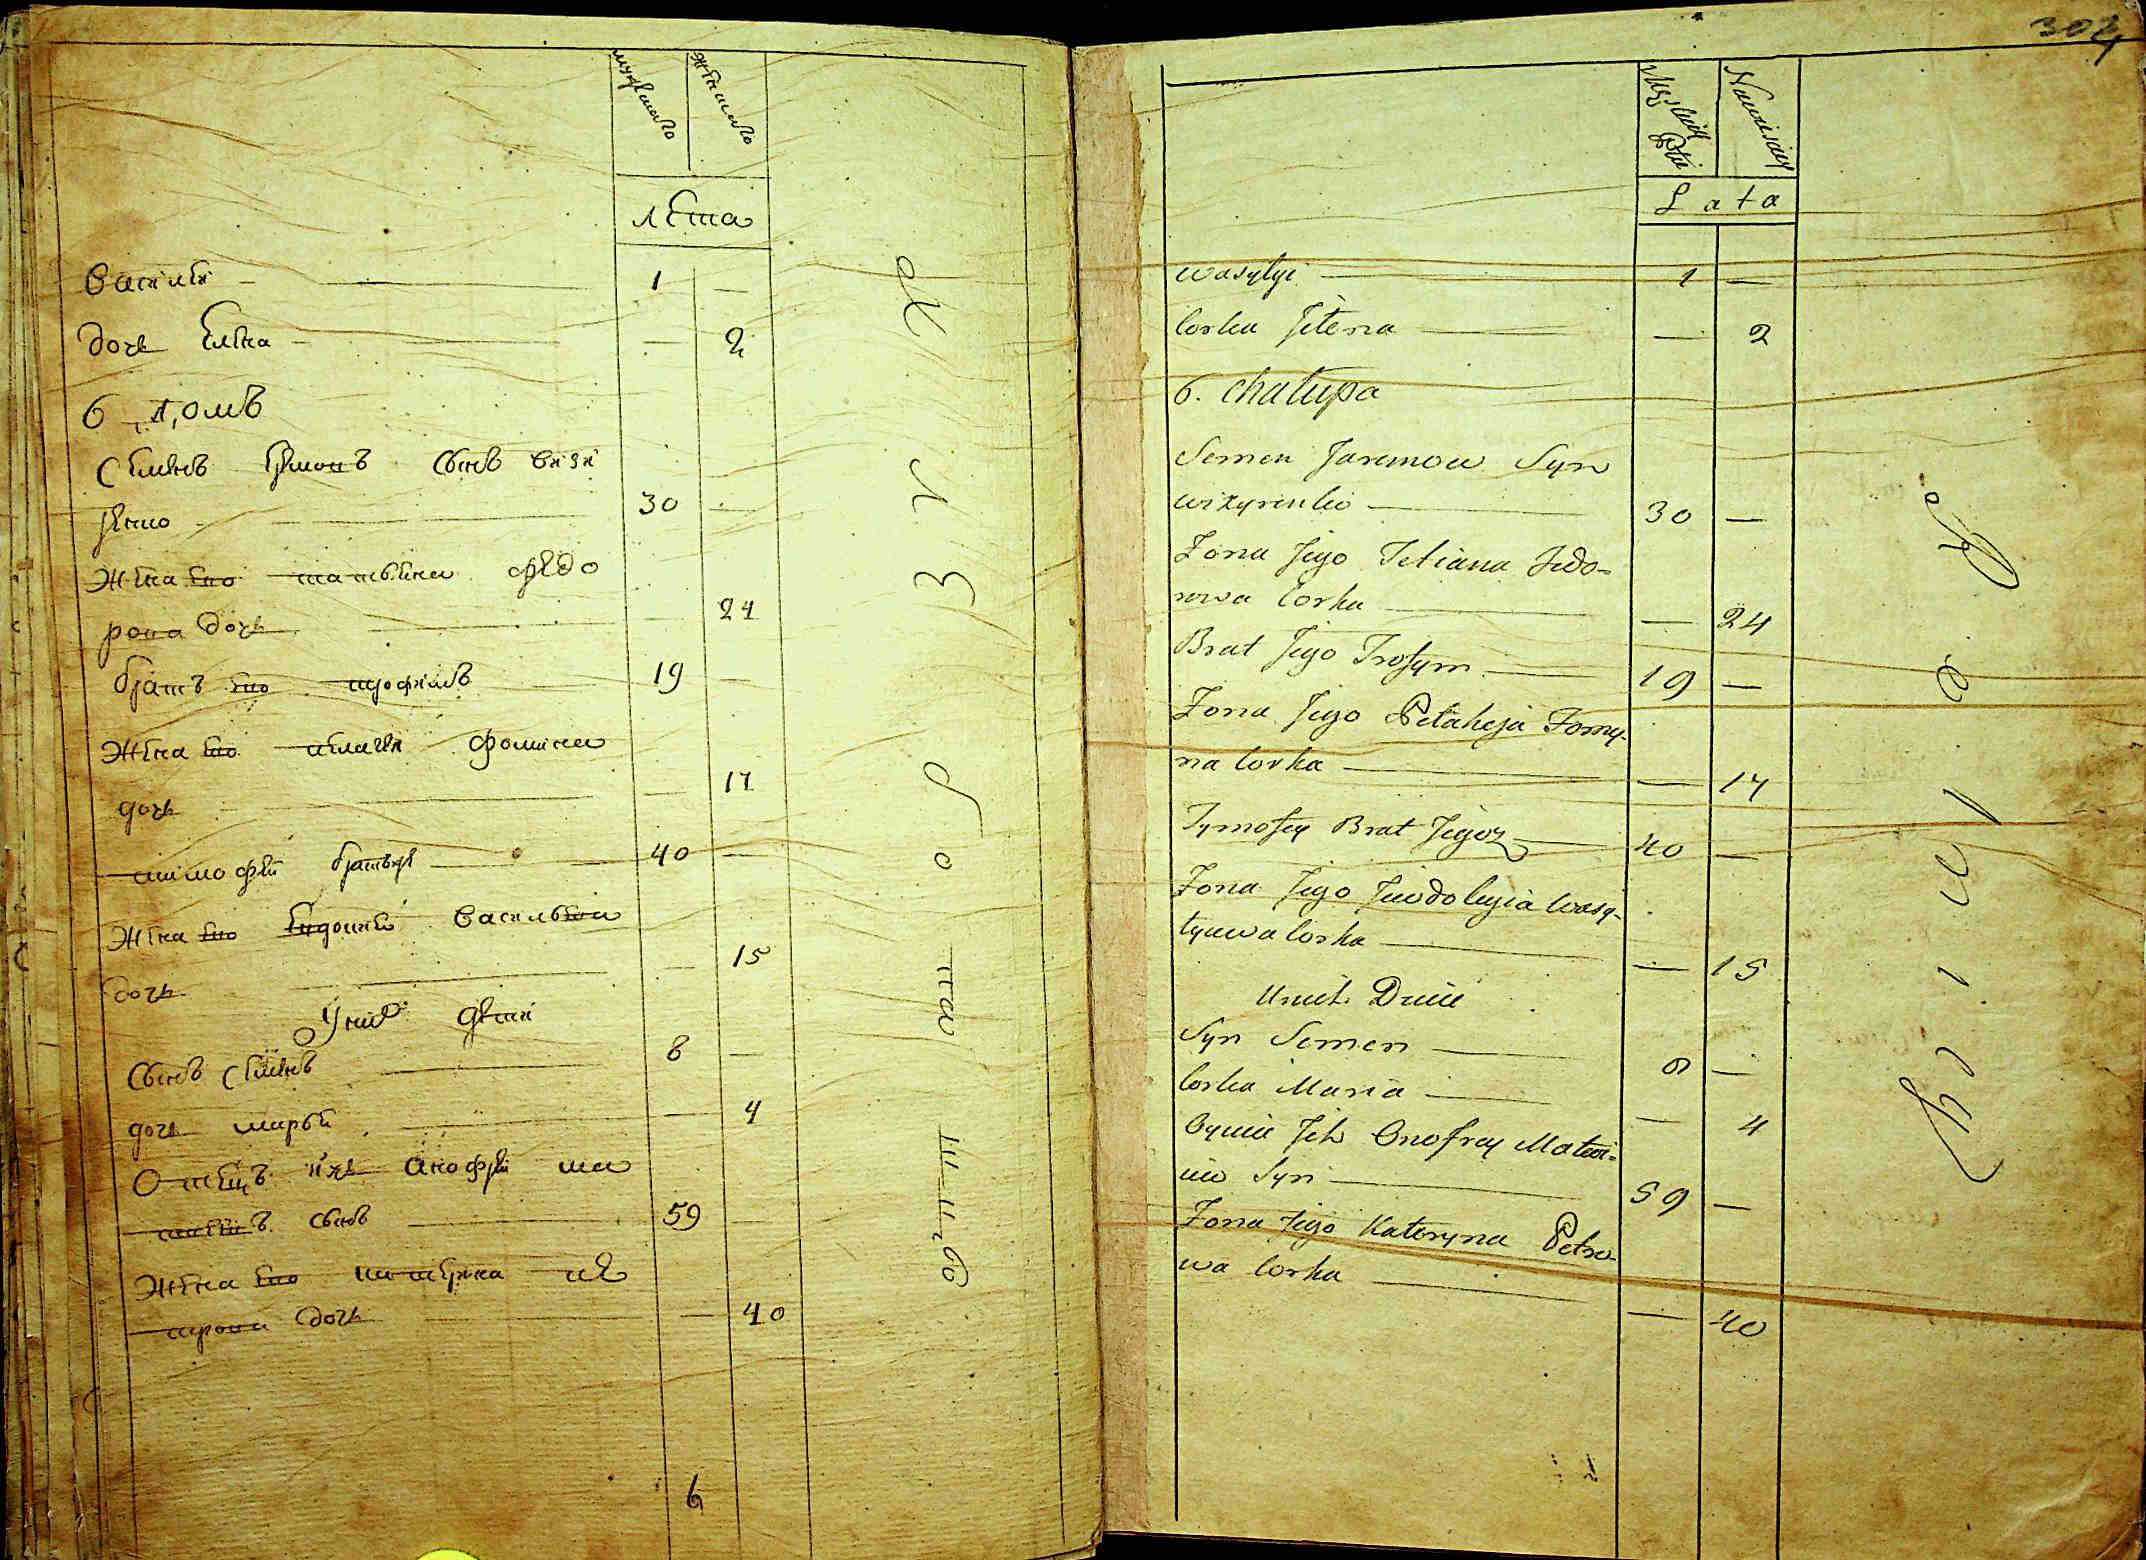 мужеска
женска
лѣта
Василій — 1 —
дочь Елена — — 2
6 домъ
Семенъ Яремовъ сынъ Визи
ренко — 30 —
Жена его татьяна федо
рова дочь — — 24
братъ его трофимъ — 19 —
Жена его пелагія фомина
дочь — — 17
тимофей братъ — 40 —
Жена его Евдокия Васильева
дочь — — 15
У них дети
Сынъ Семенъ — 8 —
дочь марья — — 4
Отецъ ихъ Анофрей ма
твеевъ сынъ — 59 —
Жена его катерина пе
трова дочь — — 40
6
304
Męskiey Płci
Lata
Wasylyi — 1 —
Corka Jelena — — 2
6. Chałupa
Semen Jaremow Syn
Wizyrenko — 30 —
Żona Jego Tetiana Fedo-
rowa Corka — — 24
Brat Jego Trofym — 19 —
Żona Jego Pelaheja Fomy-
na Corka — — 17
Tymofey Brat Jego — 40 —
Żona Jego Jewdokyia Wasy-
lyewa Corka — — 15
Unich Dzieci
Syn Semen — 8 —
Corka Maria — — 4
Oyciec Jch Onofrey Matwi-
iew Syn — 59 —
Żona Jego Kateryna Petro-
wa Corka — — 40